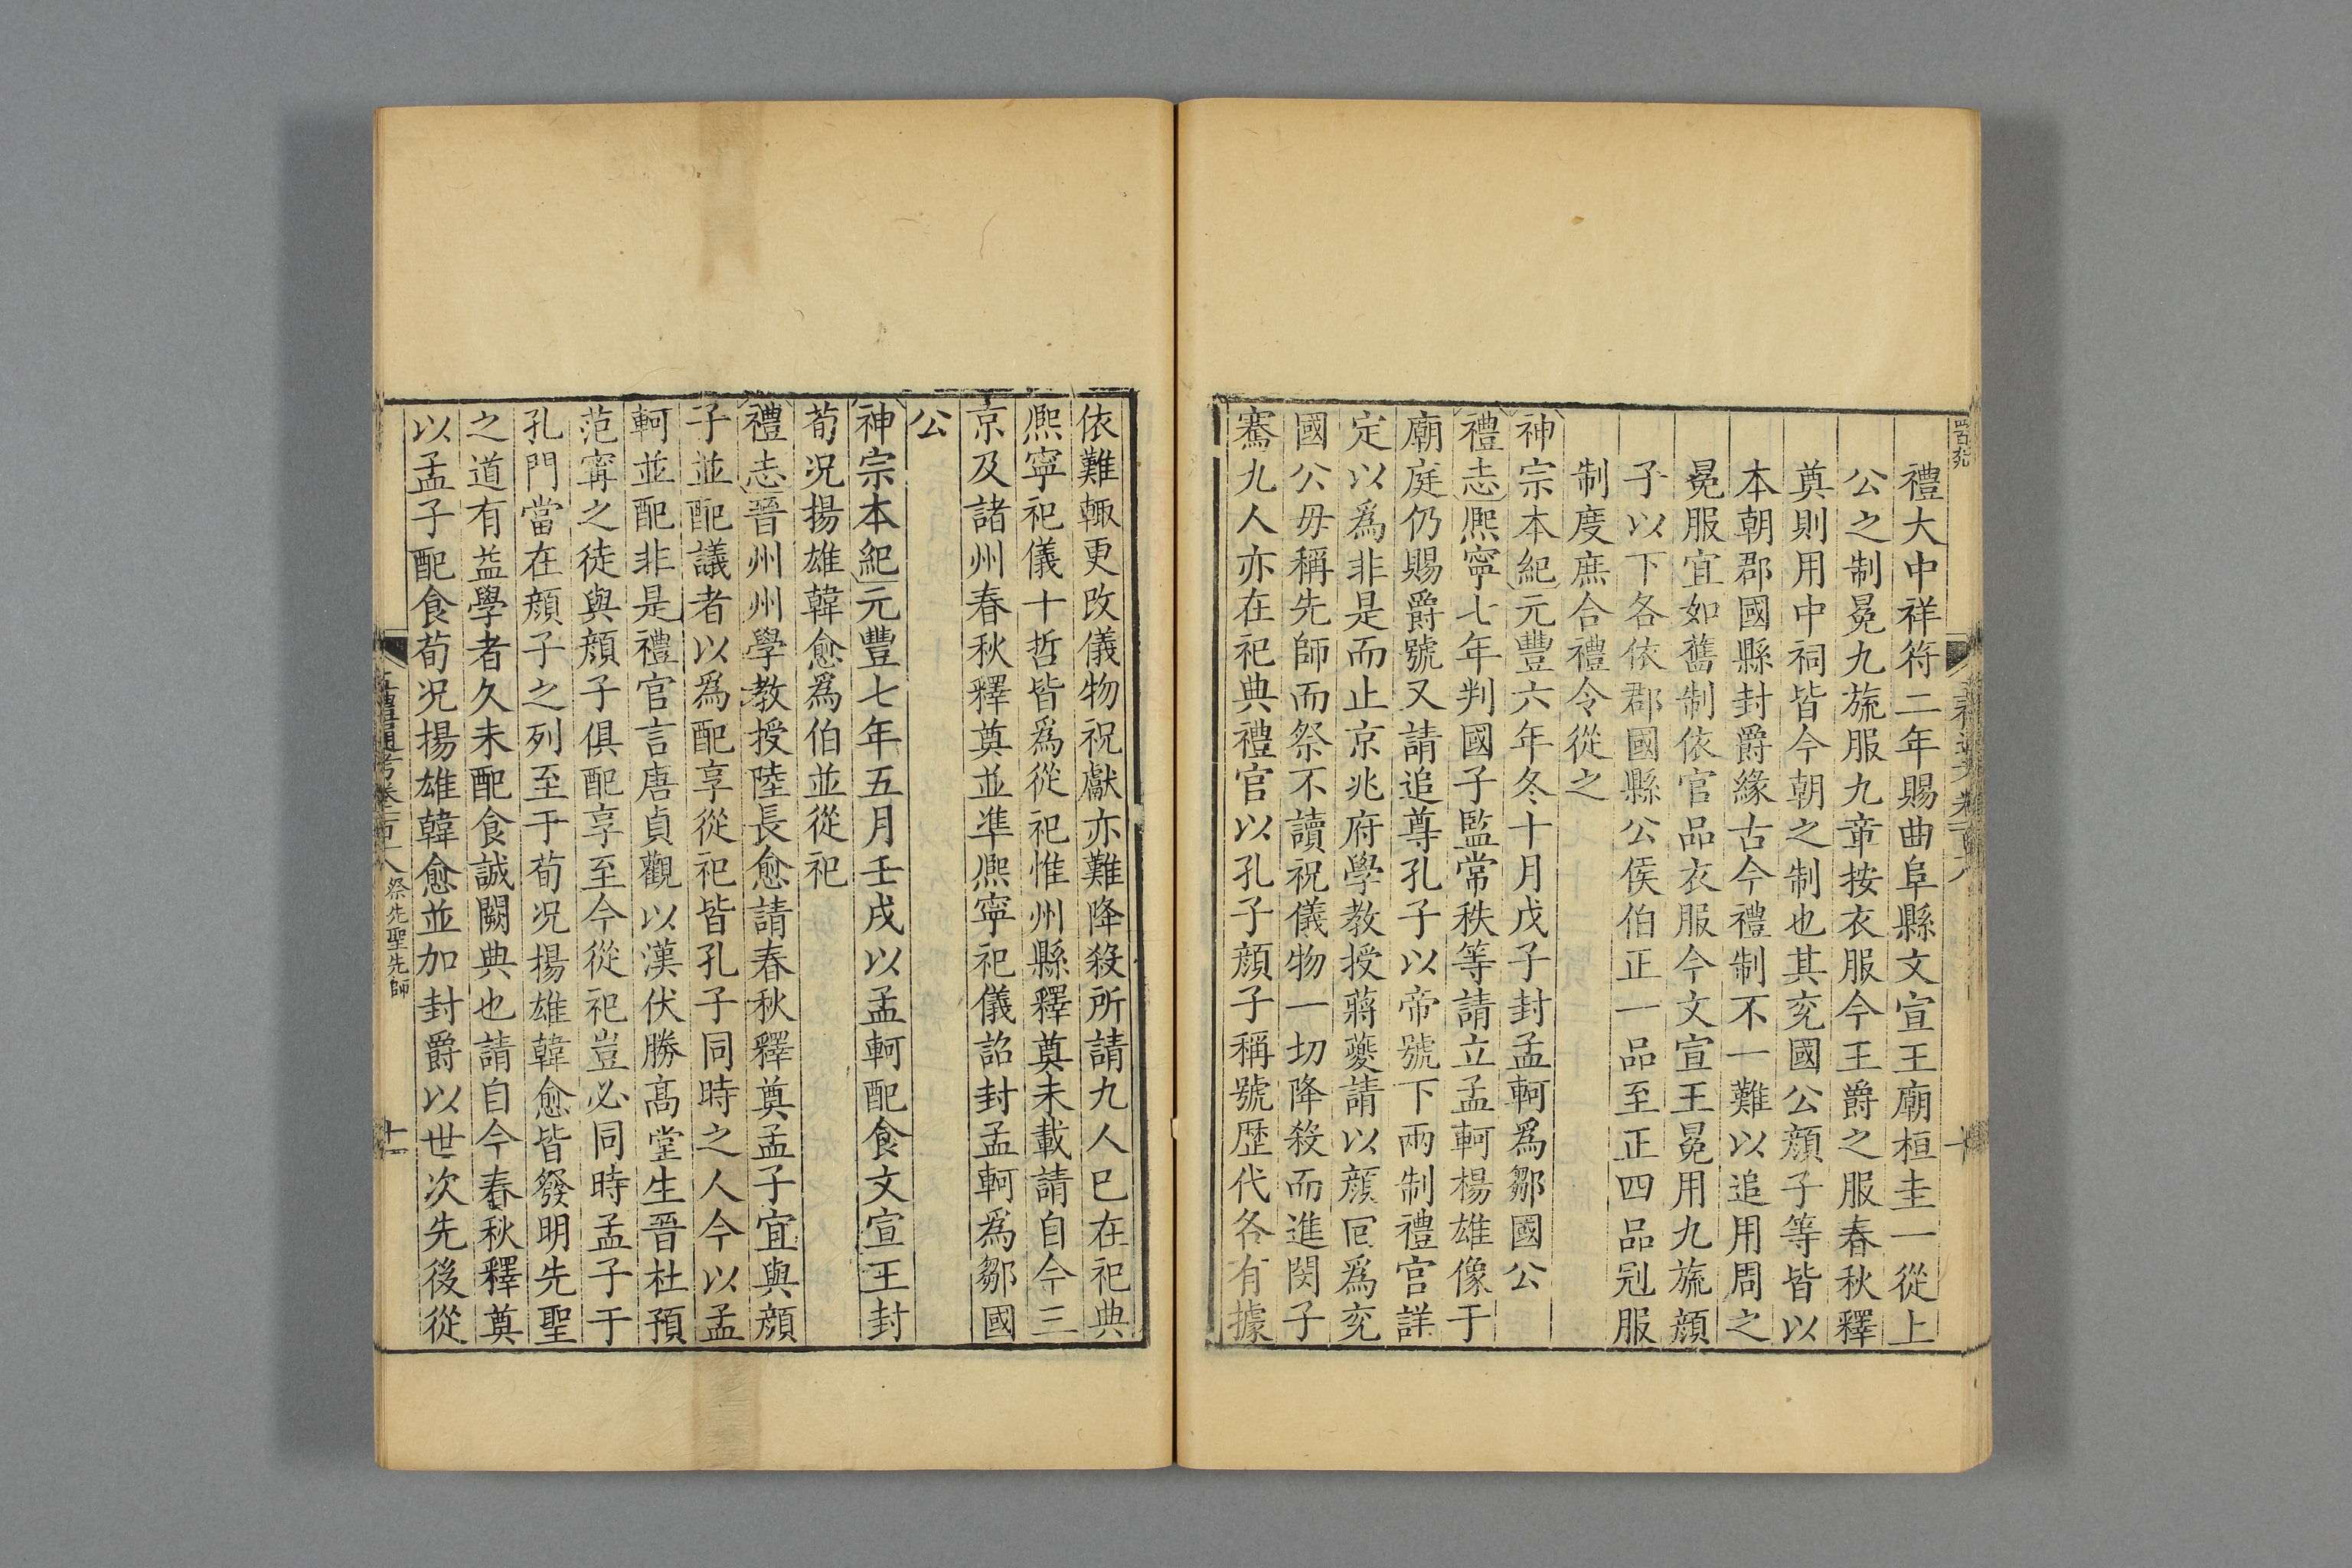 禮大中祥符二年賜曲阜縣文宣王廟桓圭一從上
公之制冕九旒服九章按衣服今王爵之服春秋釋
奠則用中祠皆今朝之制也其兖國公顔子等皆以
本朝郡國縣封爵緣古今禮制不一難以追用周之
冕服宜如舊制依官品衣服今文宣王冕用九旒顔
子以下各依郡國縣公侯伯正一品至正四品冠服
制度庶合禮令從之
神宗本紀元豐六年冬十月戊子封孟軻爲鄒國公
禮志熙寧七年判國子監常秩等請立孟軻楊雄像于
廟庭仍賜爵號又請追尊孔子以帝號下兩制禮官詳
定以爲非是而止京兆府學教授蔣夔請以顔回爲兖
國公毋稱先師而祭不讀祝儀物一切降殺而進閔子
騫九人亦在祀典禮官以孔子顔子稱號歷代各有據
依難輒更改儀物祝獻亦難降殺所請九人巳在祀典
熙寧祀儀十哲皆爲從祀惟州縣釋奠未載請自今三
京及諸州春秋釋奠並準熙寧祀儀詔封孟軻爲鄒國
公
神宗本紀元豐七年五月壬戌以孟軻配食文宣王封
荀况揚雄韓愈爲伯並從祀
禮志晉州州學教授陸長愈請春秋釋奠孟子宜與顔
子並配議者以爲配享從祀皆孔子同時之人今以孟
軻並配非是禮官言唐貞觀以漢伏勝髙堂生晉杜預
范甯之徒與顔子俱配享至今從祀豈必同時孟子于
孔門當在顔子之列至于荀况揚雄韓愈皆發明先聖
之道有益學者久未配食誠闕典也請自今春秋釋奠
以孟子配食荀况揚雄韓愈並加封爵以世次先後從
祭先聖先師
十一